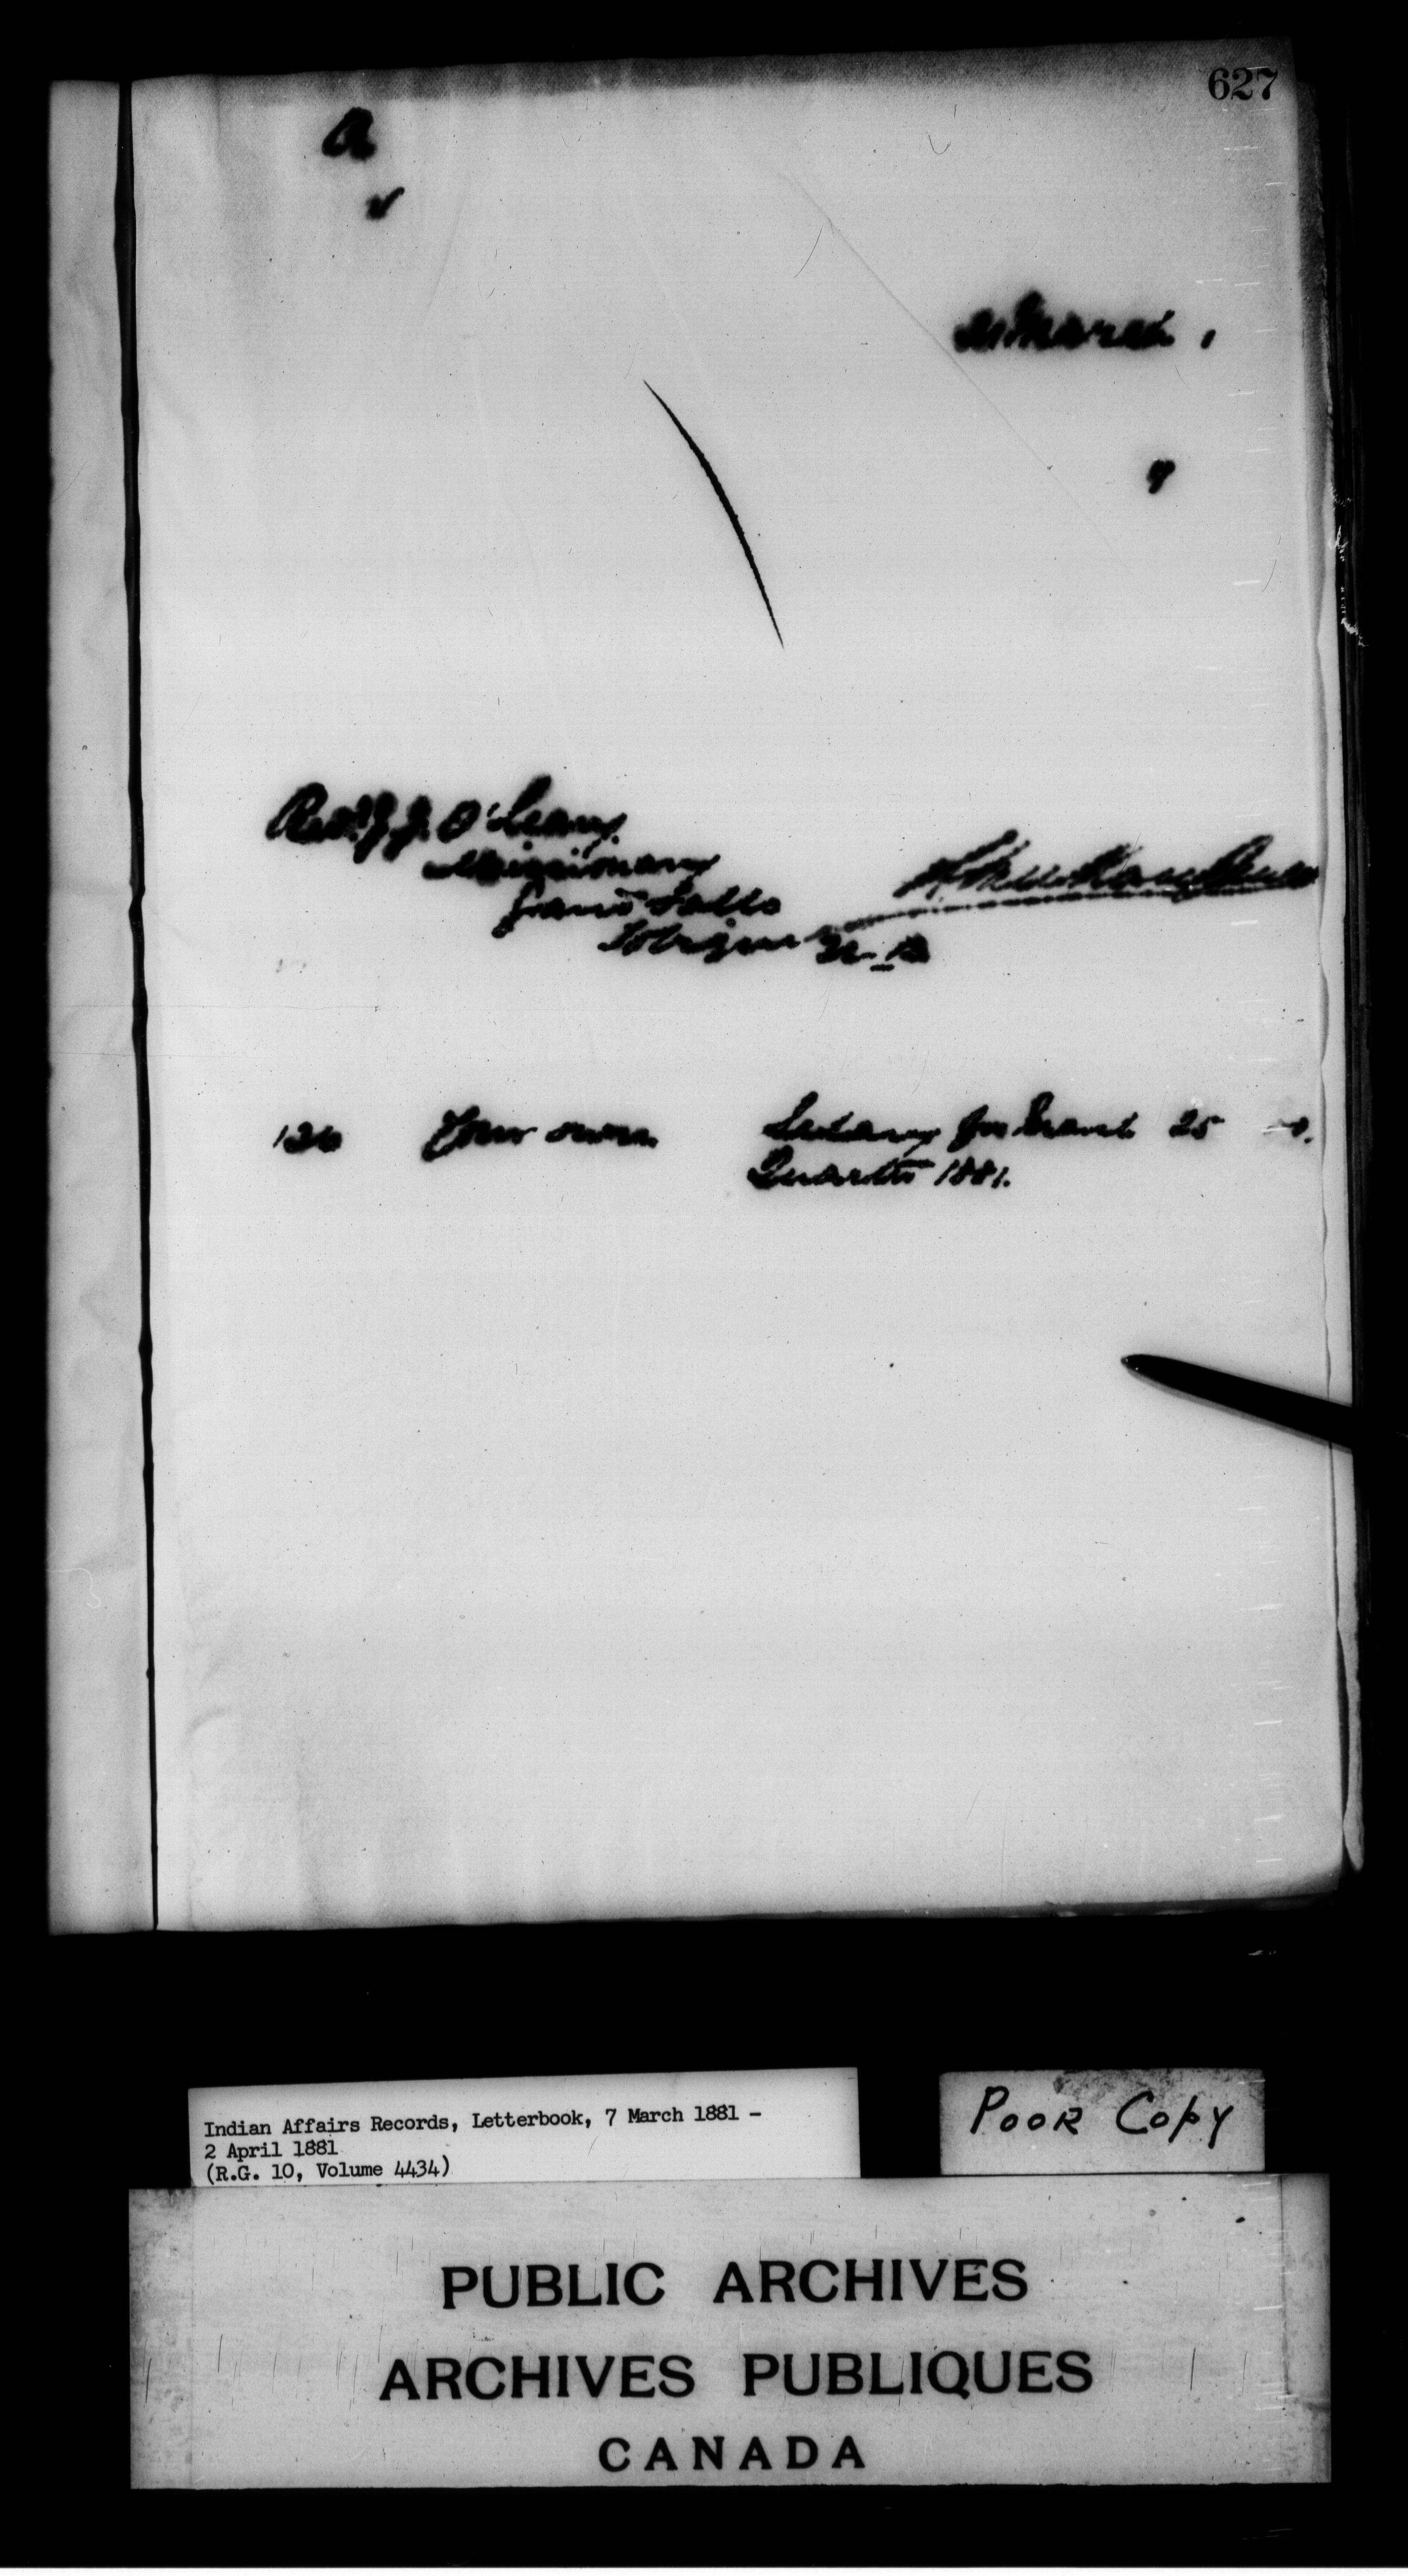 627
a
31 March 1
Revd. J. J. O'Leary
Missionary
Grand Falls
Tobique N-B
126 Your own Salary for March 25
Quarter 1881.
Indian Affairs Records, Letterbook, 7 March 1881 -
2 April 1881
(R.G. 10, Volume 4434)
POOR COPY
PUBLIC ARCHIVES
ARCHIVES PUBLIQUES
CANADA